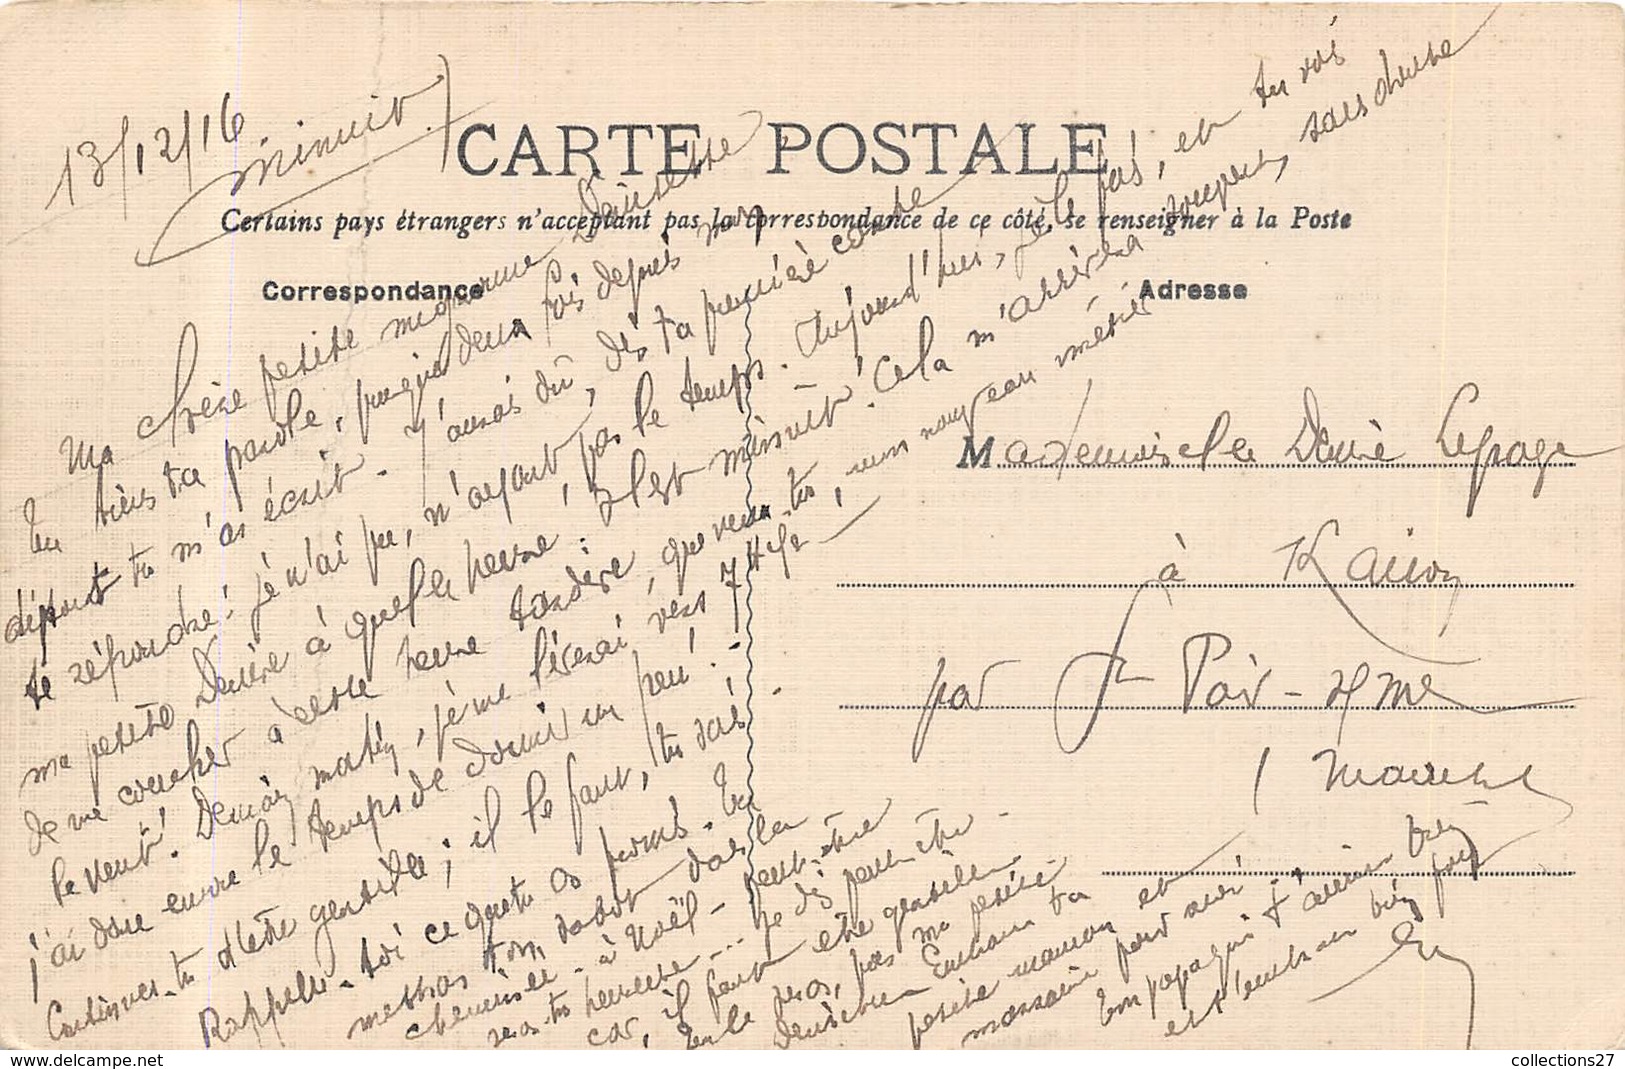 13/12/16
(minuit)
CARTE POSTALE
Certains pays étrangers n'acceptant pas la correspondance de ce côté, se renseigner à la Poste
Correspondance
Adresse
Ma chère petite mignonne Denisette
tu tiens ta parole, puisque deux fois depuis mon
départ tu m'as écrit. J'aurais dû, dès ta première carte
te répondre: je n'ai pu, n'ayant pas le temps. Aujourd'hui, je le fais, et tu vois
ma petite Denise à quelle heure: il est minuit! Cela m'arrivera souvent, sans doute
de me coucher à cette heure tardive, que veux-tu, mon nouveau métier
le veut! Demain matin, je me lèverai vers 7 H ½
j'ai donc encore le temps de dormir un peu!
Continues-tu d'être gentille; il le faut, tu sais
Rappelle-toi ce que tu as promis. Tu
mettras ton sabot dans la
cheminée à Noël - peut-être
seras-tu heureuse... je dis peut-être
car, il faut être gentille.
Tu le seras, pas ma petite
Embrasse ta
petite maman et
pour moi
ton papa qui t'aime bien
et t'embrasse bien fort
Mademoiselle Denise Lepage
à Kairon
par St Pair-s/Mer
(Manche)
collections27